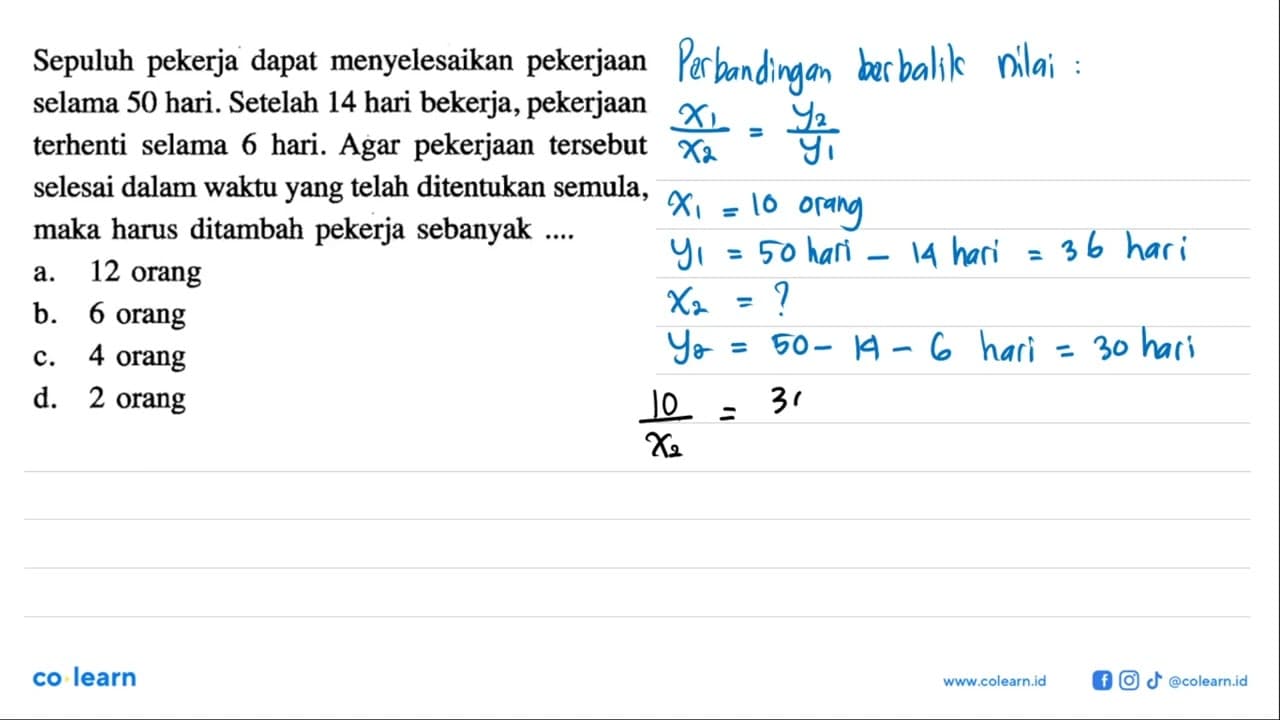 Sepuluh pekerja dapat menyelesaikan pekerjaan
selama 50 hari. Setelah 14 hari bekerja, pekerjaan
terhenti selama 6 hari. Agar pekerjaan tersebut
selesai dalam waktu yang telah ditentukan semula,
maka harus ditambah pekerja sebanyak ....
a. 12 orang
b. 6 orang
c. 4 orang
d. 2 orang
Perbandingan berbalik nilai :
x1/x2 = y2/y1
x1 = 10 orang
y1 = 50 hari - 14 hari = 36 hari
x2 = ?
y2 = 50 - 14 - 6 hari = 30 hari
10/x2 = 3
co learn
www.colearn.id
@colearn.id